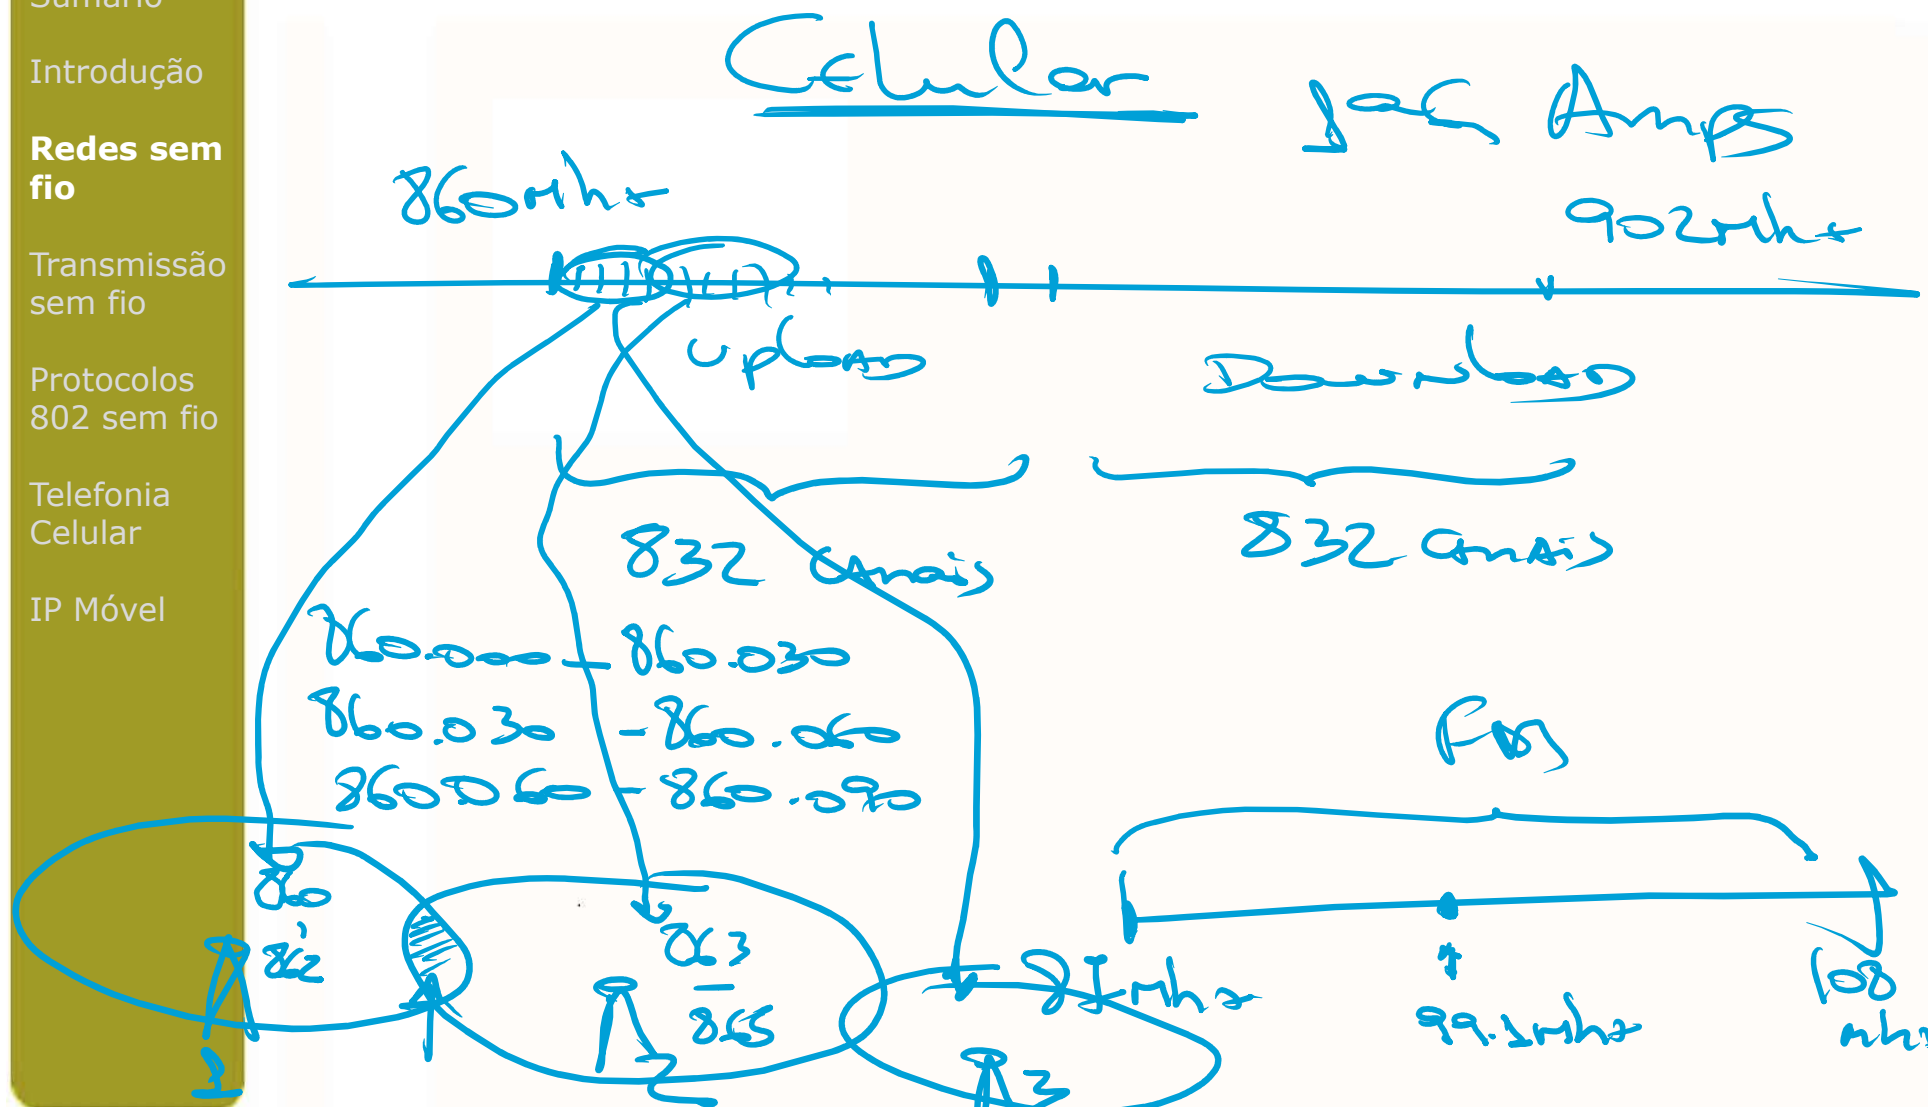 Sumário
Introdução
Redes sem
fio
Transmissão
sem fio
Protocolos
802 sem fio
Telefonia
Celular
IP Móvel
Celular
1ªG Amps
860Mhz
902Mhz
upload
Download
832 canais
832 canais
860.000 - 860.030
860.030 - 860.060
860060 - 860.090
FM
860
862
863
865
81mhz
99.1mhz
108
mhz
1
2
3